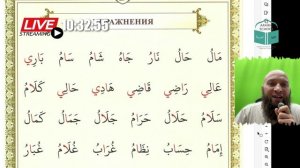 LIVE
STREAMING
10:32:55
РАЖНЕНИЯ
مَالُ حَالُ نَارُ جَاهُ شَامُ سَامُ بَارِي
عَالِي رَاضِي قَاضِي هَادِي حَالِي كَلَامُ
سَلَامُ حَلَالُ حَرَامُ جَلَالُ جَمَالُ كَمَالُ
إِمَامُ حِسَابُ نِظَامُ غُرَابُ غُلَامُ غُبَارُ